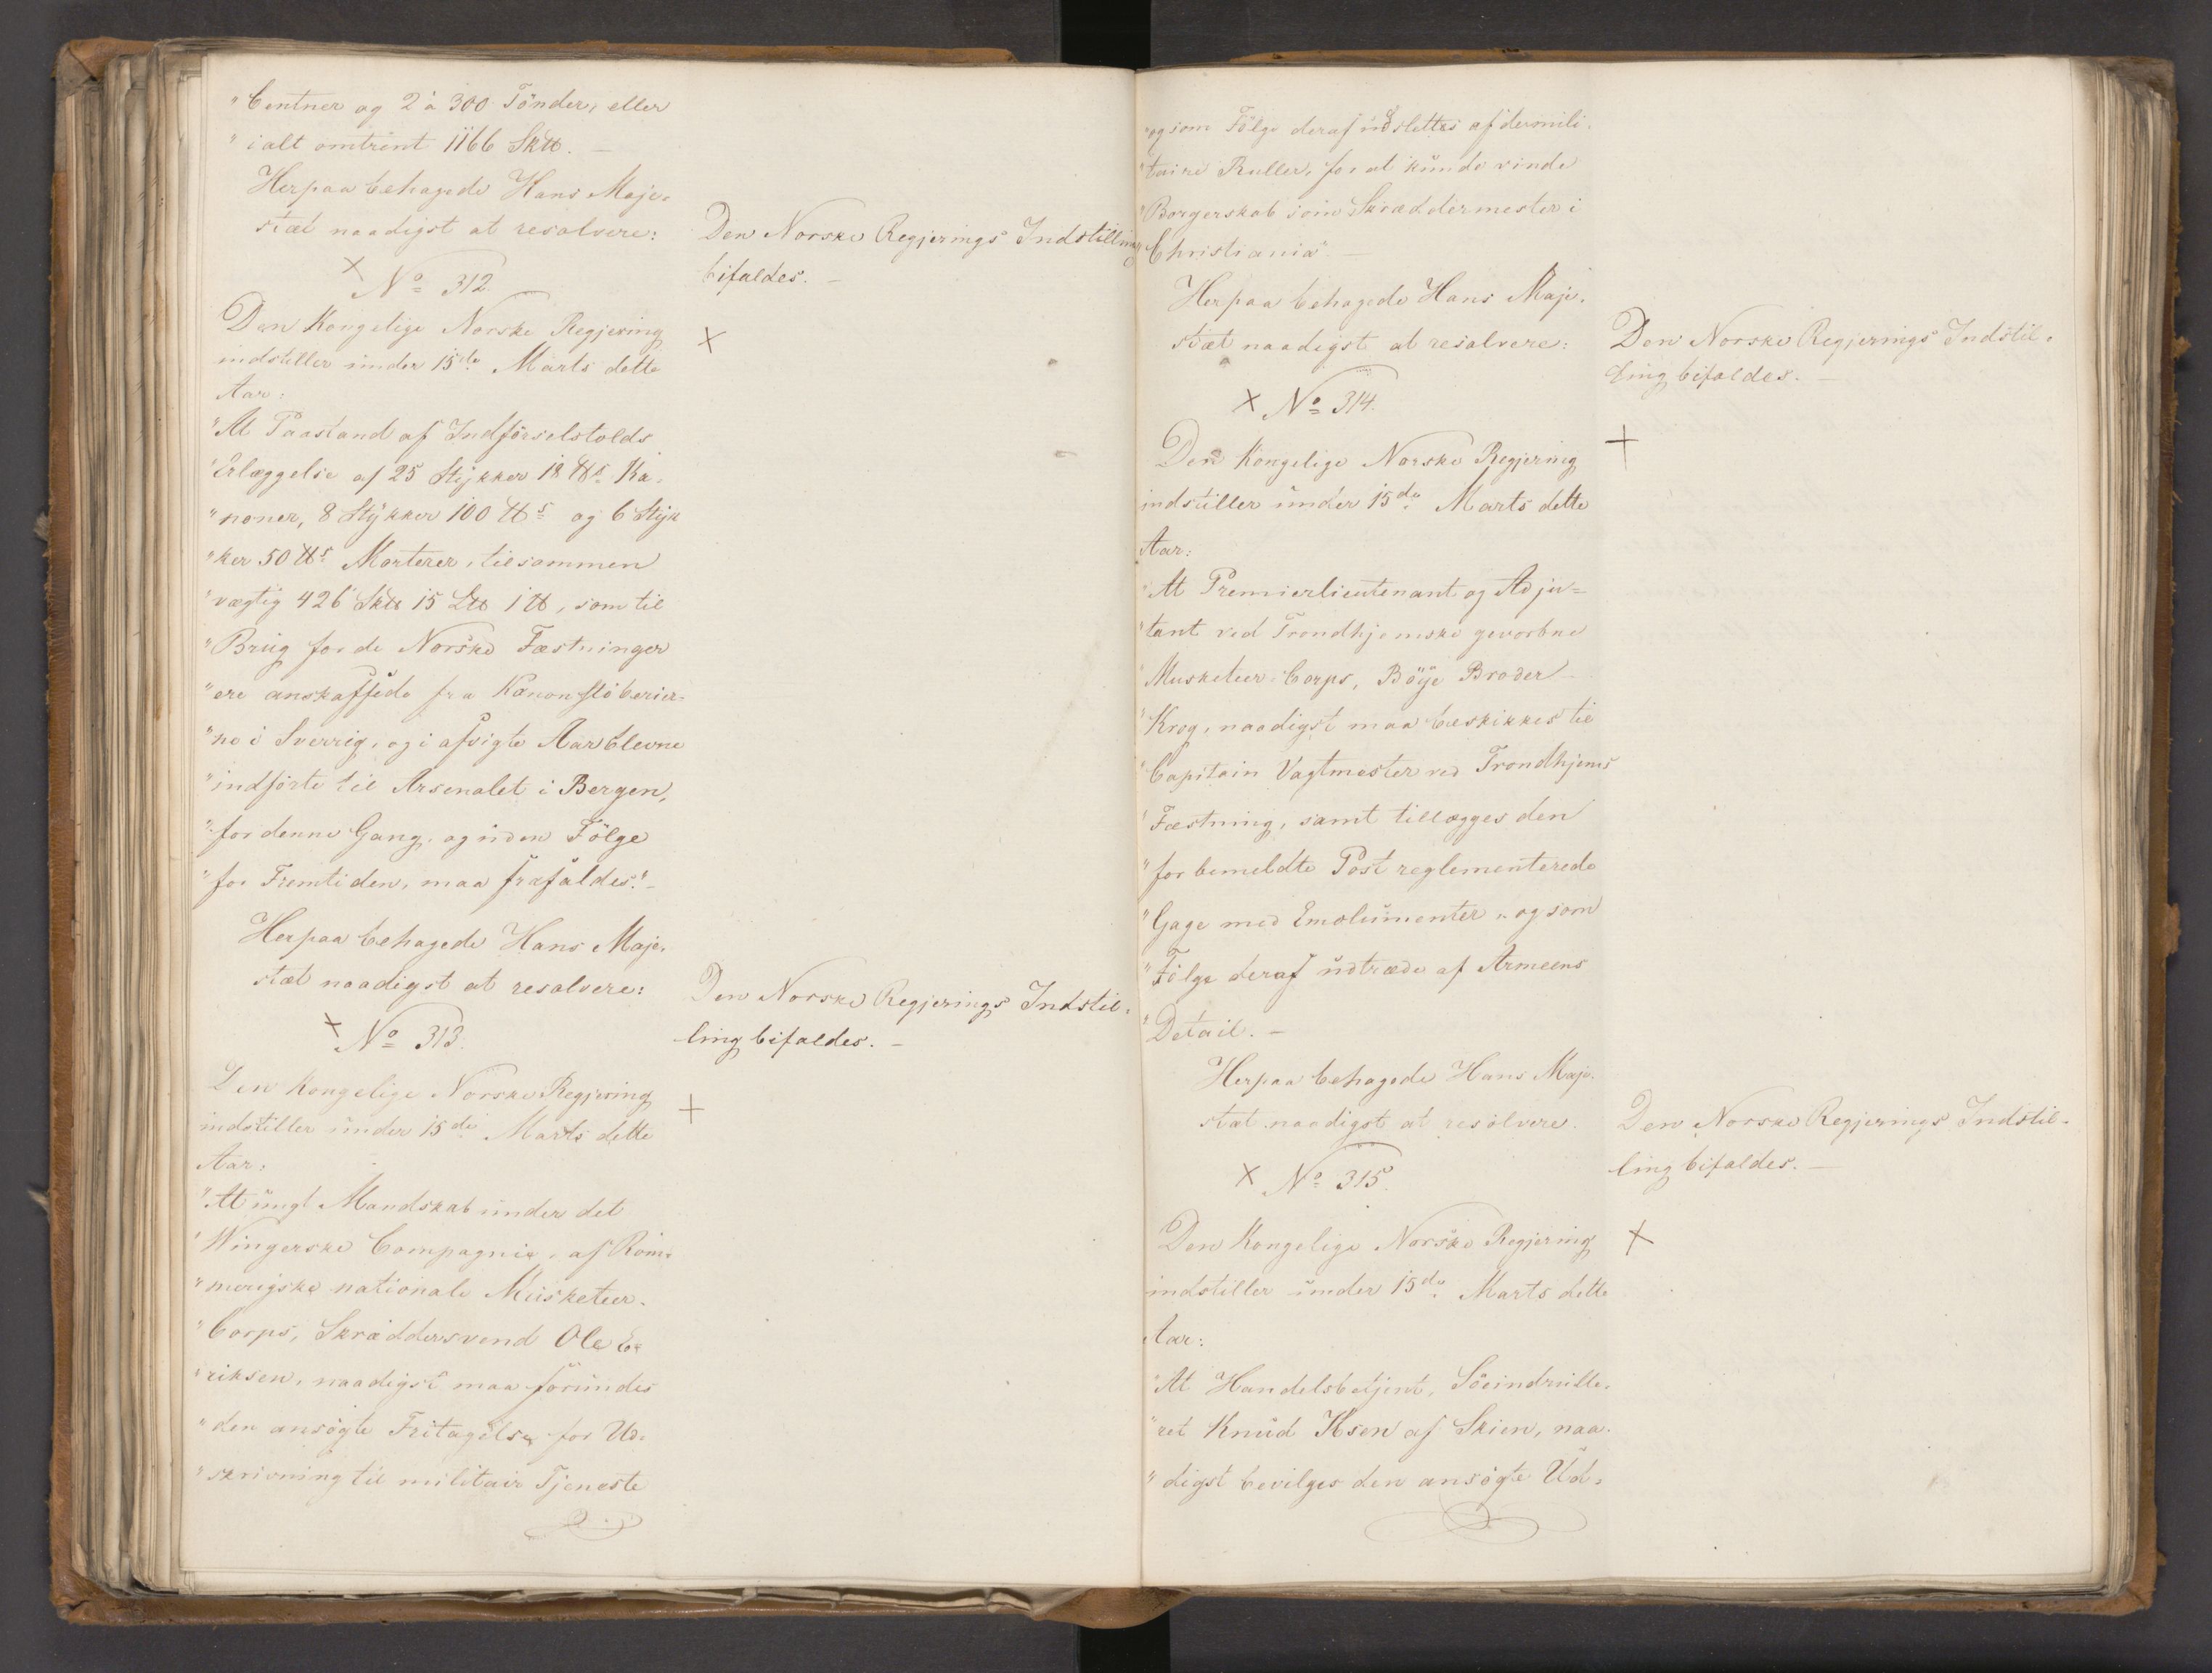 "Centner og 2 à 300 Tönder, eller
"ialt omtrent 1166 Sk℔. —
Herpaa behagede Hans Maje-
stæt naadigst at resolvere:
Den Norske Regjerings Indstilling
bifaldes. —
× No 312.
Den Kongelige Norske Regjering
indstiller under 15de Marts dette
Aar:
×
"At Paastand af Indförselstolds
"Erlæggelse af 25 Stykker 18 ℔s Ka-
"noner, 8 Stykker 100 ℔s og 6 Styk
"ker 50 ℔s Morterer, tilsammen
"vægtig 426 Sk℔ 15 L℔ 1 ℔, som til
"Brug for de Norske Fæstninger
"ere anskaffede fra Kanonstöberier-
"ne i Sverrig, og i afvigte Aar blevne
"indförte til Arsenalet i Bergen,
"for denne Gang, og uden Fölge
"for Fremtiden, maa frafaldes." —
Herpaa behagede Hans Maje-
stæt naadigst at resolvere:
Den Norske Regjerings Indstil-
ling bifaldes. —
× No 313.
Den Kongelige Norske Regjering
indstiller under 15de Marts dette
Aar:
+
"At ungt Mandskab under det
"Wingerske Compagnie, af Rom-
"merigske nationale Musketeer-
"Corps, Skræddersvend Ole E-
"riksen, naadigst maa forundes
"den ansögte Fritagelse for Ud-
"skrivning til militair Tjeneste
"og som Fölge deraf udslettes af de mili-
"taire Ruller, for at kunde vinde
"Borgerskab som Skræddermester i
"Christiania" —
Herpaa behagede Hans Maje-
stæt naadigst at resolvere:
Den Norske Regjerings Indstil-
ling bifaldes. —
× No 314.
Den Kongelige Norske Regjering
indstiller under 15de Marts dette
Aar:
+
"At Premierlieutenant og Adju-
"tant ved Trondhjemske gevorbne
"Musketeer-Corps, Böye Broder
"Krog, naadigst maa beskikkes til
"Capitain Vagtmester ved Trondhjems
"Fæstning, samt tillægges den
"for bemeldte Post reglementerede
"Gage med Emolumenter, og som
"Fölge deraf udtræde af Armeens
"Detail. —
Herpaa behagede Hans Maje-
stæt naadigst at resolvere.
Den Norske Regjerings Indstil-
ling bifaldes. —
× No 315.
Den Kongelige Norske Regjering
indstiller under 15de Marts dette
Aar:
×
"At Handelsbetjent, Söeindrulle-
"ret Knud Ksen af Skien, naa-
"digst bevilges den ansögte Ud-